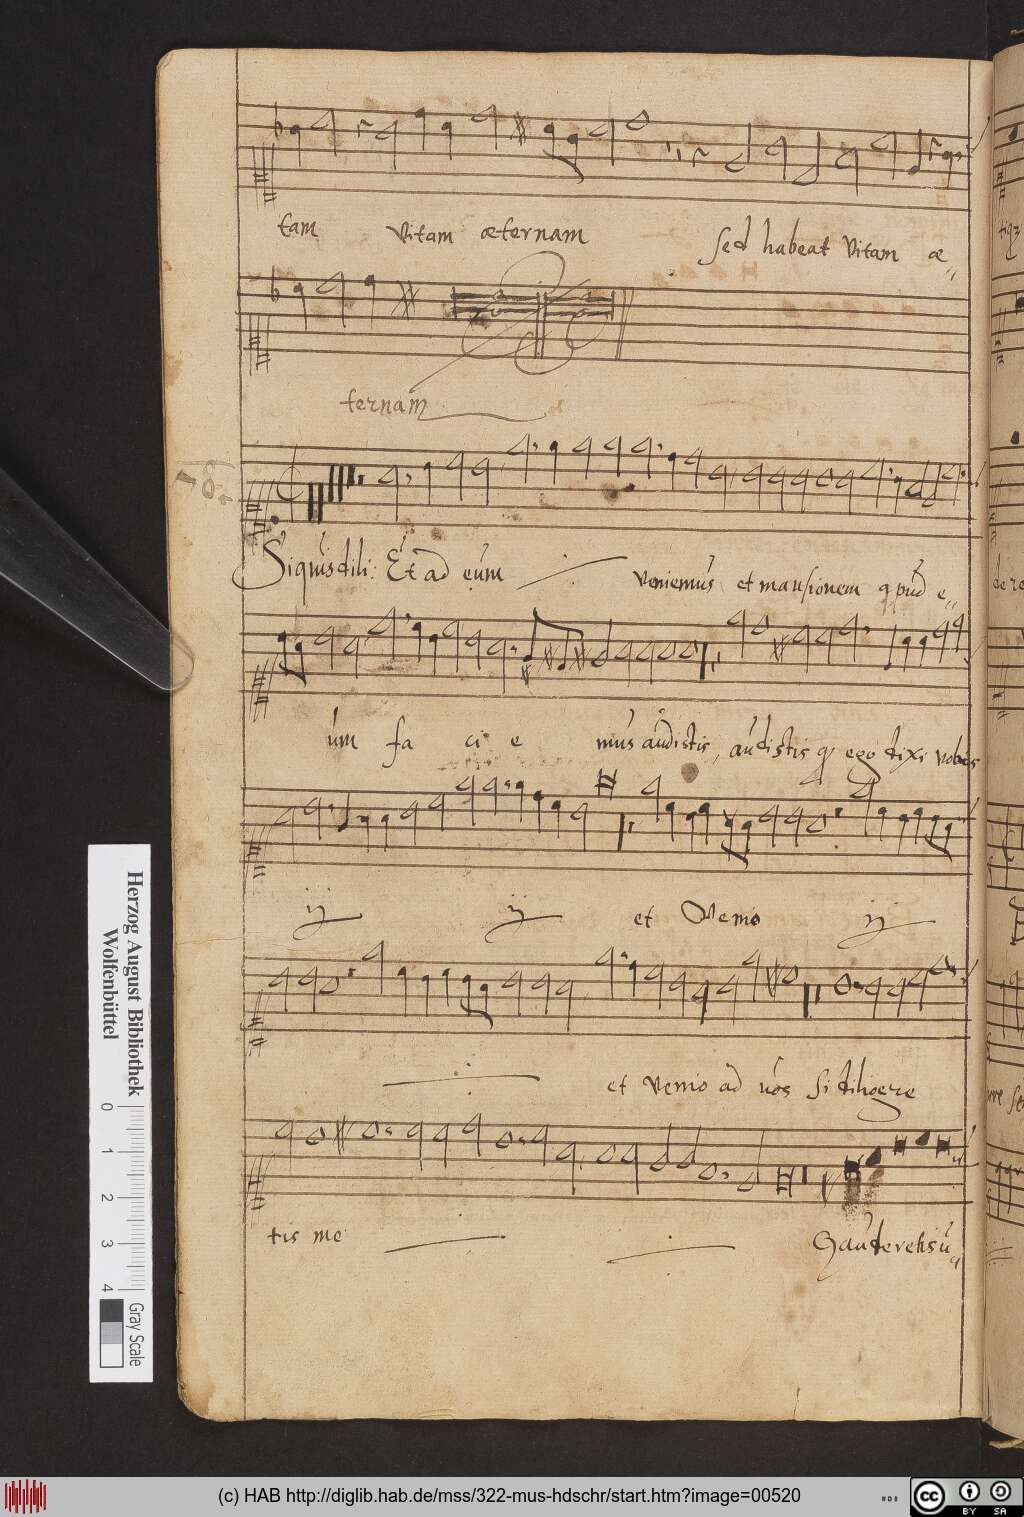 tam vitam æternam sed habeat vitam æ
ternam
Siquis dili: Et ad eum veniemus et mansionem apud e
um fa ci e mus audistis, audistis q ego dixi vobis
ij ij et Venio ij
et venio ad vos si diligere
tis me Gauderetis u
Herzog August Bibliothek
Wolfenbüttel
0 1 2 3 4
Gray Scale
(c) HAB http://diglib.hab.de/mss/322-mus-hdschr/start.htm?image=00520
HAB
cc BY SA